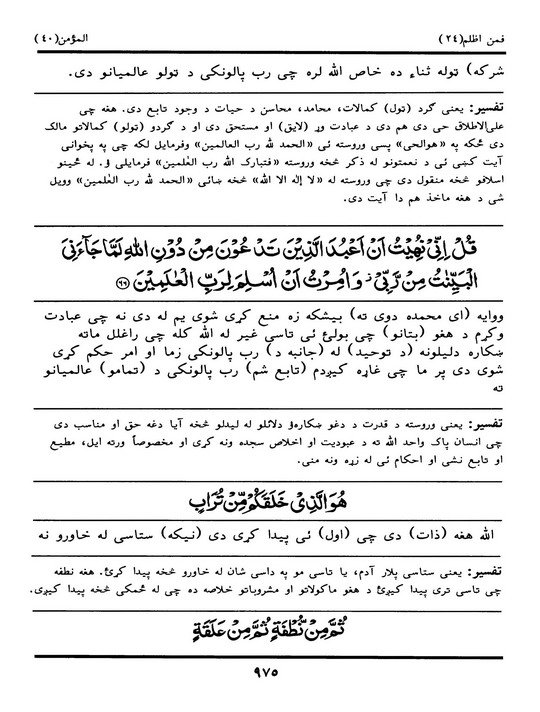 فمن اظلم(٢٤)
المؤمن(٤٠)
شرکه) ټوله ثناء ده خاص الله لره چی رب پالونکی د ټولو عالمیانو دی.
تفسیر: یعنی گرد (ټول) کمالات، محامد، محاسن د حیات د وجود تابع دی. هغه چی
علی‌الاطلاق حی دی هم دی د عبادت وړ (لایق) او مستحق دی او د گردو (ټولو) کمالاتو مالک
دی ځکه په «هوالحی» پسی وروسته ئی «الحمد لله رب العالمین» وفرمایل لکه چی په پخوانی
آیت کښی ئی د نعمتونو له ذکر څخه وروسته «فتبارک الله رب العٰلمین» فرمایلی ؤ. له ځینو
اسلافو څخه منقول دی چی وروسته له «لا إله الا الله» څخه ښائی «الحمد لله رب العٰلمین» وویل
شی د هغه ماخذ هم دا آیت دی.
قُلْ اِنِّیْ نُهِیْتُ اَنْ اَعْبُدَ الَّذِیْنَ تَدْعُوْنَ مِنْ دُوْنِ اللهِ لَمَّا جَآءَنِیَ
الْبَیِّنٰتُ مِنْ رَّبِّیْ ز وَاُمِرْتُ اَنْ اُسْلِمَ لِرَبِّ الْعٰلَمِیْنَ ﴿٦٦﴾
ووایه (ای محمده دوی ته) بیشکه زه منع کړی شوی یم له دی نه چی عبادت
وکړم د هغو (بتانو) چی بولئ ئی تاسی غیر له الله کله چی راغلل ماته
ښکاره دلیلونه (د توحید) له (جانبه د) رب پالونکی زما او امر حکم کړی
شوی دی پر ما چی غاړه کیږدم (تابع شم) رب پالونکی د (تمامو) عالمیانو
ته
تفسیر: یعنی وروسته د قدرت د دغو ښکارهؤ دلائلو له لیدلو څخه آیا دغه حق او مناسب دی
چی انسان پاک واحد الله ته د عبودیت او اخلاص سجده ونه کړی او مخصوصاً ورته ایل، مطیع
او تابع نشی او احکام ئی له زړه ونه منی.
هُوَ الَّذِیْ خَلَقَکُمْ مِّنْ تُرَابٍ
الله هغه (ذات) دی چی (اول) ئی پیدا کړی دی (نیکه) ستاسی له خاورو نه
تفسیر: یعنی ستاسی پلار آدم، یا تاسی مو په داسی شان له خاورو څخه پیدا کړئ. هغه نطفه
چی تاسی تری پیدا کیږئ د هغو ماکولاتو او مشروباتو خلاصه ده چی له ځمکی څخه پیدا کیږی.
ثُمَّ مِنْ نُّطْفَةٍ ثُمَّ مِنْ عَلَقَةٍ
٩٧٥